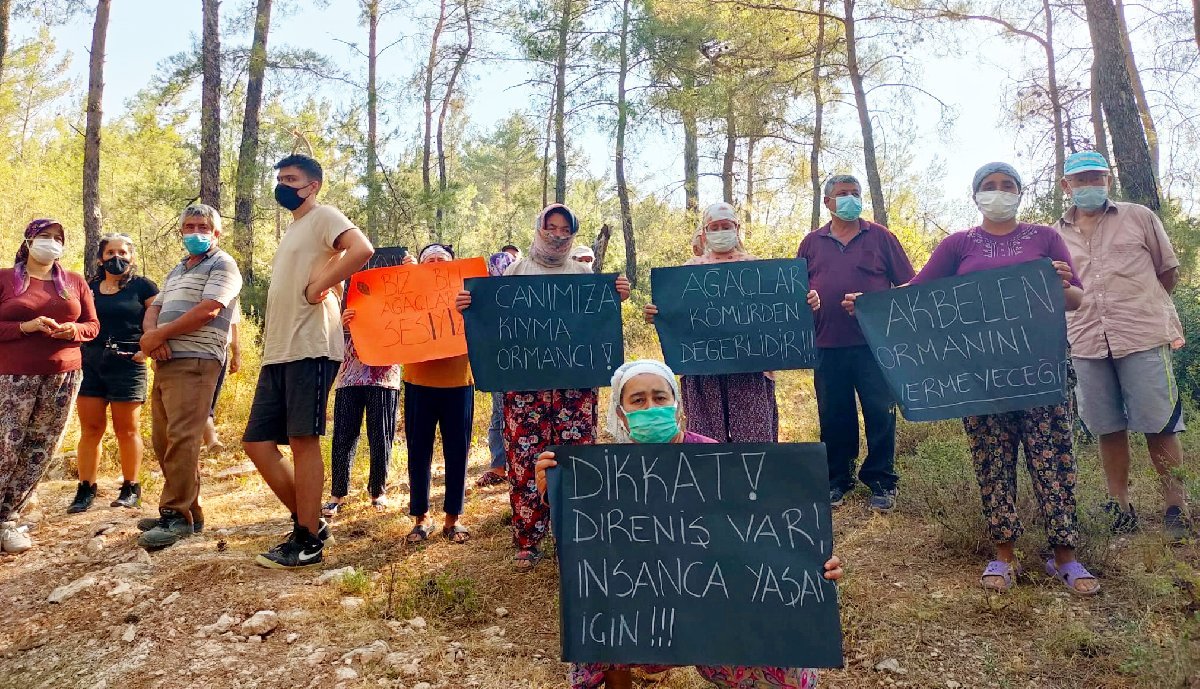 BİZ BU
AĞAÇLAR
SESİYİZ
CANIMIZA
KIYMA
ORMANCI !
AĞAÇLAR
KÖMÜRDEN
DEĞERLİDİR!!!
AKBELEN
ORMANINI
VERMEYECEĞİ
DİKKAT!
DİRENİŞ VAR!
INSANCA YAŞAM
IÇIN!!!